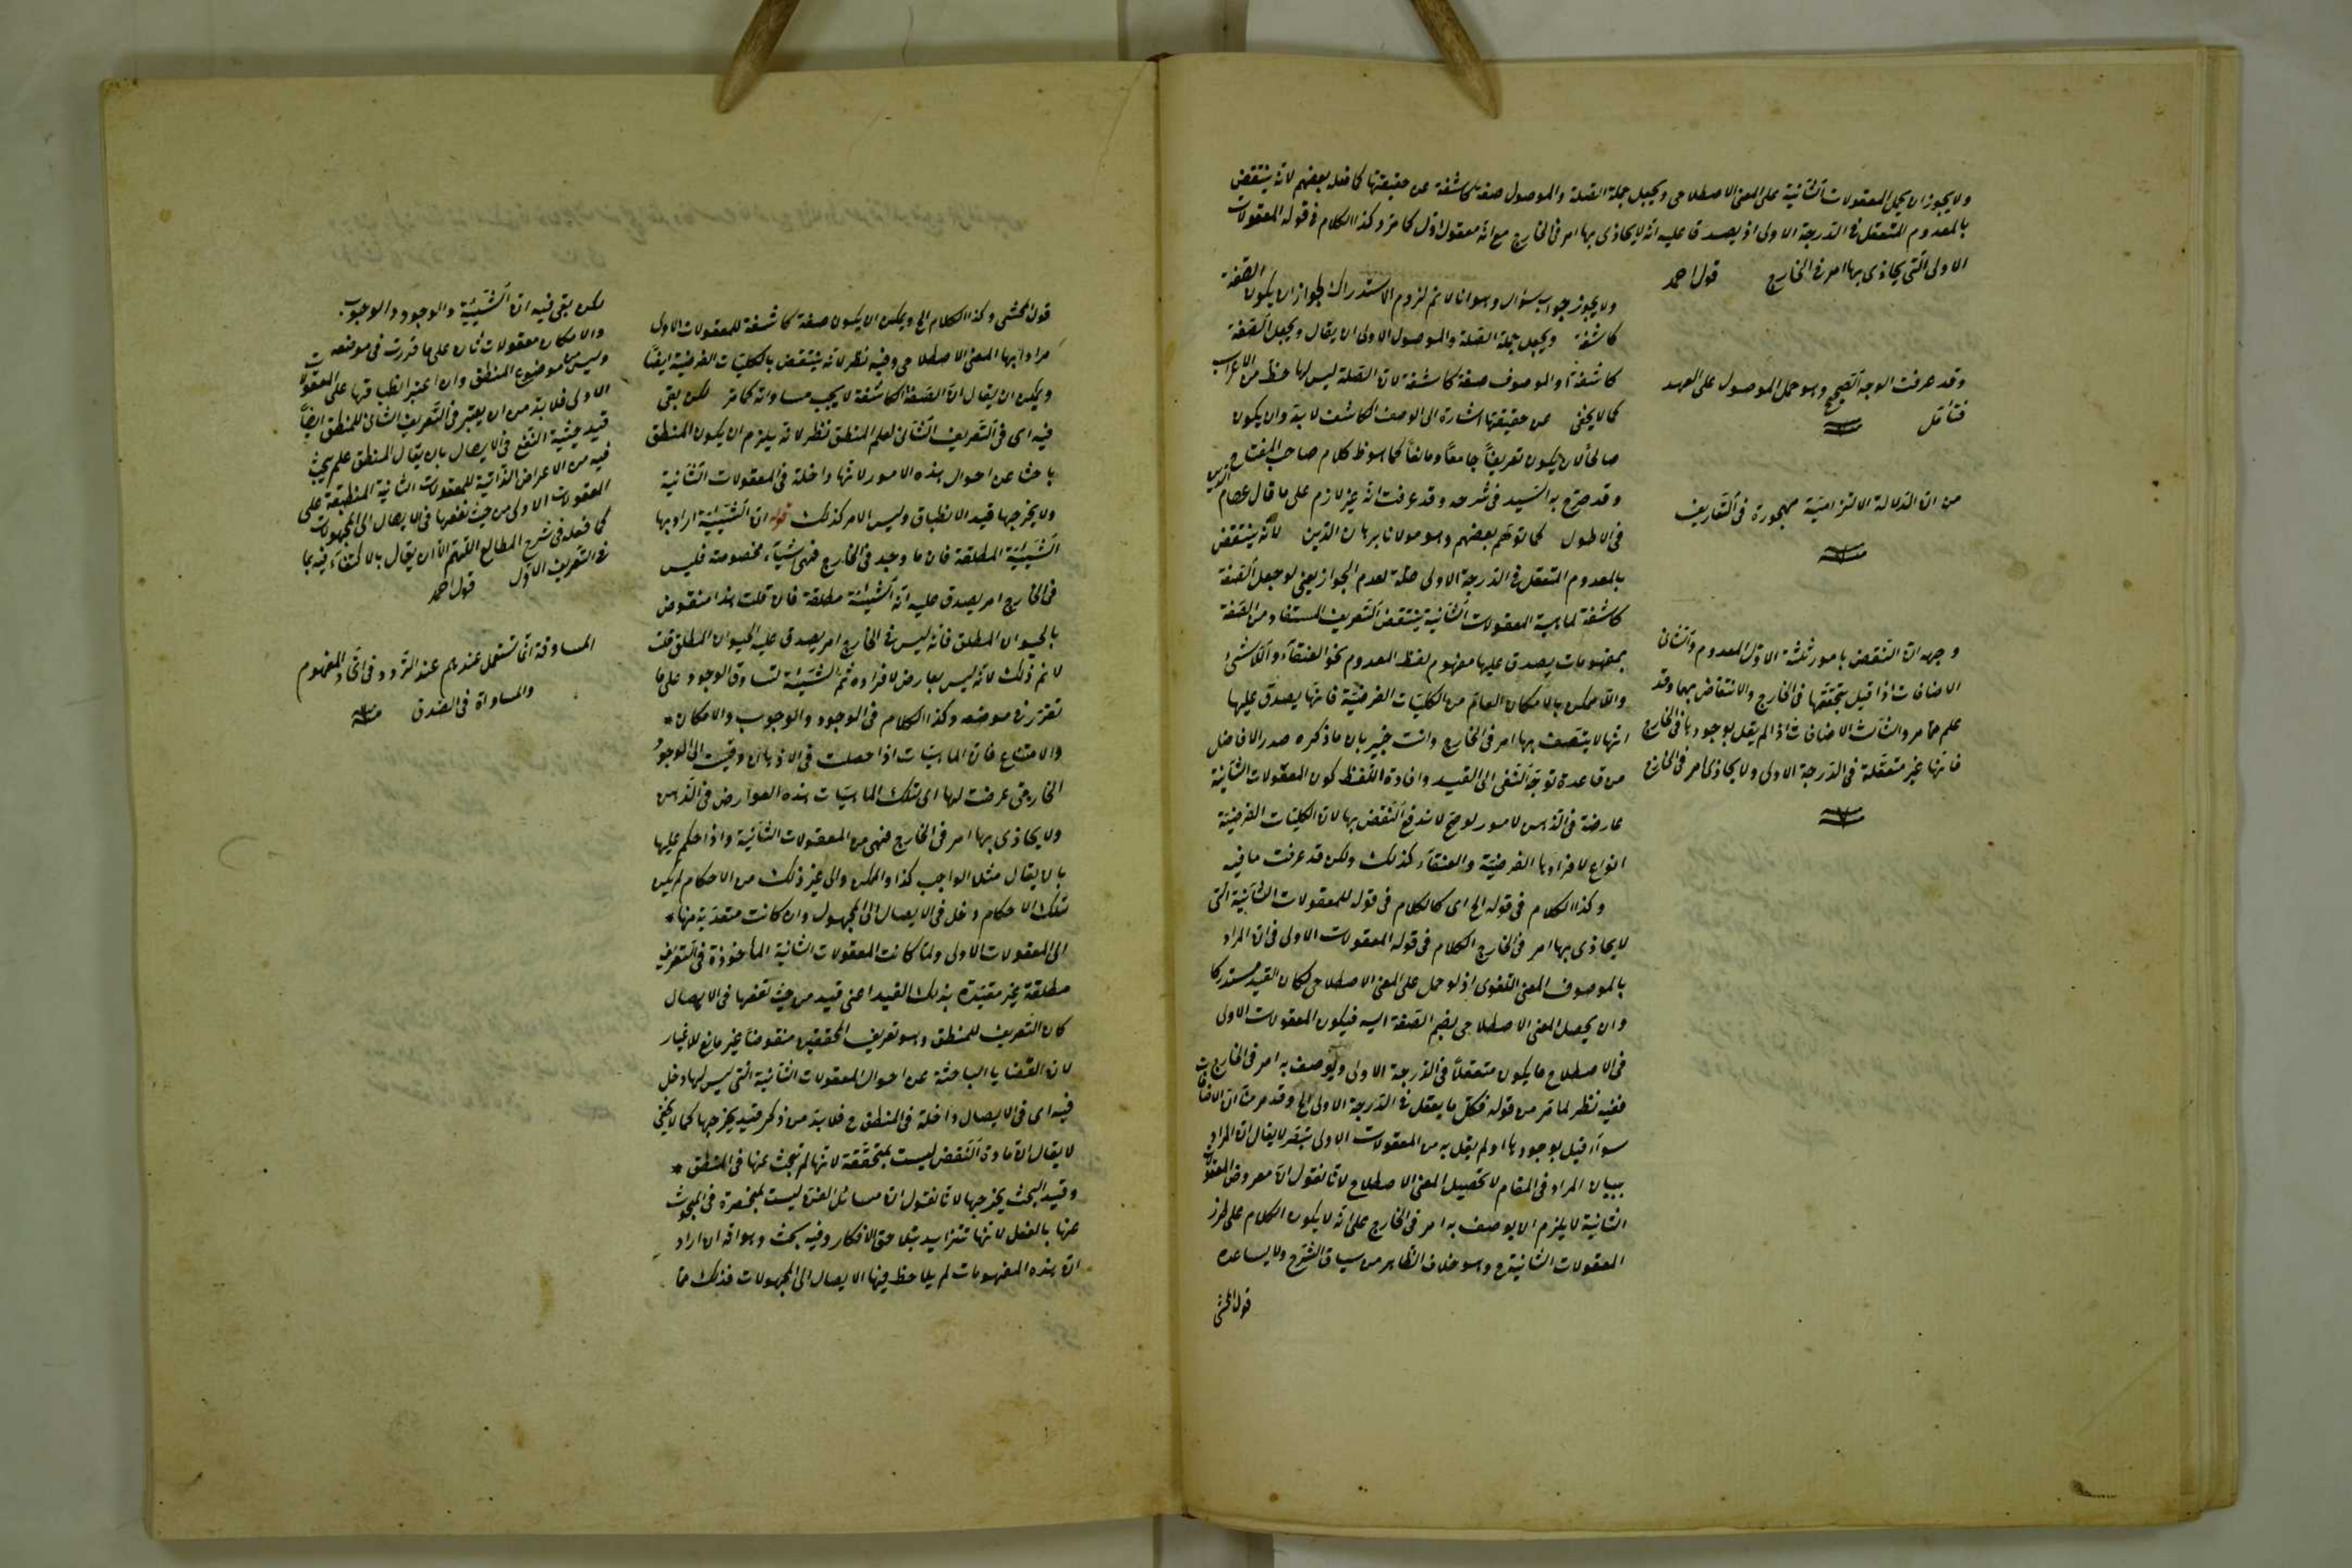 ولا يجوز ان يحمل المعقولات الثانية على المعنى الاصطلاحى ويجعل جملة الصلة والموصول صفة كاشفة عن حقيقتها كما فعله بعضهم لانه ينتقض
بالمعدوم المتعقل فى الدرجة الاولى اذ يصدق عليه انه لا يحاذى بها امر فى الخارج مع انه معقول اول كما مر وكذا الكلام فى قوله المعقولات
الاولى التى يحاذى بها امر فى الخارج قول احمد
ولا يجوز جواب سؤال وهو انا لا نم لزوم الاستدراك لجواز ان يكون الصفة
كاشفة ويجعل جملة الصلة والموصول الاولى ان يقال ويجعل الصفة
كاشفة او الموصوف صفة كاشفة لان الصلة ليس لها حظ من الاعراب
كما لا يخفى عن حقيقتها اشارة الى الوصف الكاشف لا بد وان يكون
صالحا لان يكون تعريفا جامعا ومانعا كما هو ظ كلام صاحب المفتاح
وقد صرح به السيد فى شرحه وقد عرفت انه غير لازم على ما قال عصام الدين
فى الاطول كما توهم بعضهم وهو مولانا برهان الدين لانه ينتقض
بالمعدوم المتعقل فى الدرجة الاولى علة لعدم الجواز يعنى لو جعل الصفة
كاشفة لماهية المعقولات الثانية ينتقض التعريف المستفاد من الصفة
بمفهومات يصدق عليها مفهوم لفظ المعدوم نحو العنقاء واللاشئ
واللاممكن بالامكان العام من الكليات الفرضية فانها يصدق عليها
انها لا يتصف بها امر فى الخارج وانت خبير بان ما ذكره صدر الافاضل
من قاعدة توجه النفى الى القيد وافادة اللفظ كون المعقولات الثانية
عارضة فى الذهن لامور لو صح لاندفع النقض بها لان الكليات الفرضية
انواع لافرادها الفرضية والعنقاء كذلك ولكن قد عرفت ما فيه
وكذا الكلام فى قوله الح اى كالكلام فى قوله للمعقولات الثانية التى
لا يحاذى بها امر فى الخارج الكلام فى قوله المعقولات الاولى فى ان المراد
بالموصوف المعنى اللغوى اذ لو حمل على المعنى الاصطلاحى لكان القيد مستدركا
وان يحصل المعنى الاصطلاحى بضم الصفة اليه فيكون المعقولات الاولى
فى الاصطلاح ما يكون متعقلا فى الدرجة الاولى ويوصف به امر فى الخارج
ففيه نظر لما مر من قوله فكل ما يعقل فى الدرجة الاولى الح وقد مر منا ان الاضافات
سواء قيل بوجودها او لم يقل به من المعقولات الاولى لا يقال ان المراد
ببيان المراد فى المقام لا تحصيل المعنى الاصطلاح لانا نقول ان معروض المعقولات
الثانية لا يلزم ان يوصف به امر فى الخارج على انه لا يكون الكلام على طرز
المعقولات الثانية ح وهو خلاف الظاهر من سياق الشرح ولا يساعده
قول المحشى
وقد عرفت الوجه الصحيح وهو حمل الموصول على العهد
فتأمل منه
من ان الدلالة الالتزامية مهجورة فى التعاريف
منه
وجهه ان النقض بامور ثلثة الاول المعدوم والثانى
الاضافات اذا قيل بتحققها فى الخارج والانتقاض بهما وقد
علم مما مر والثالث الاضافات اذا لم يقل بوجودها فى الخارج
فانها غير متعقلة فى الدرجة الاولى ولا يحاذى امر فى الخارج
منه
قول المحشى وكذا الكلام الح ويمكن ان يكون صفة كاشفة للمعقولات الاولى
مرادا بها المعنى الاصطلاحى وفيه نظر لانه ينتقض بالكليات الفرضية ايضا
ويمكن ان يقال ان الصفة الكاشفة لا يجب مساواته كما مر لكن بقى
فيه اى فى التعريف الثانى لعلم المنطق نظر لانه يلزم ان يكون المنطق
باحثا عن احوال هذه الامور لانها داخلة فى المعقولات الثانية
ولا يخرجها قيد الانطباق وليس الامر كذلك قوله ان الشيئية اراد بها
الشيئية المطلقة فان ما وجد فى الخارج فهى اشياء مخصوصة فليس
فى الخارج امر يصدق عليه انه الشيئية مطلقة فان قلت هذا منقوض
بالحيوان المطلق فانه ليس فى الخارج امر يصدق عليه الحيوان المطلق قلت
لا نم ذلك لانه ليس بعارض لافراده ثم الشيئية تساوق الوجود على ما
تقرر فى موضعه وكذا الكلام فى الوجود والوجوب والامكان
والامتناع فان الماهيات اذا حصلت فى الاذهان وقيست الى الوجود
الخارجى عرضت لها اى لتلك الماهيات هذه العوارض فى الذهن
ولا يحاذى بها امر فى الخارج فهى من المعقولات الثانية واذا حكم عليها
بان يقال مثل الواجب كذا والممكن والى غير ذلك من الاحكام لم يكن
لتلك الاحكام دخل فى الايصال الى المجهول وان كانت متعدية منها
الى المعقولات الاولى ولما كانت المعقولات الثانية المأخوذة فى التعريف
مطلقة غير مقيدة بذلك القيد اعنى قيد من حيث نفعها فى الايصال
كان التعريف للمنطق وهو تعريف المحققين منقوضا غير مانع للاغيار
لان القضايا الباحثة عن احوال المعقولات الثانية التى ليس لها دخل
فيه اى فى الايصال داخلة فى المنطق ح فلا بد من ذكر قيد يخرجها كما لا يخفى
لا يقال ان مادة النقض ليست بمتحققة لانها لم تبحث عنها فى المنطق
وقيد البحث يخرجها لانا نقول ان مسائل الفن ليست بمنحصرة فى المبحوث
عنها بالفعل لانها تتزايد بتلاحق الافكار وفيه بحث وهو انه ان اراد
ان هذه المفهومات لم يلاحظ فيها الايصال الى المجهولات فذلك مما
لكن بقى فيه ان الشيئية والوجود والوجوب
والامكان معقولات ثان على ما قررت فى موضعه
وليس موضوع المنطق وان اعتبر انطباقها على المعقولات
الاولى فلا بد من ان يعتبر فى التعريف الثانى للمنطق ايضا
قيد حيثية النفع فى الايصال بان يقال المنطق علم يبحث
فيه من الاعراض الذاتية للمعقولات الثانية المنطبقة على
المعقولات الاولى من حيث نفعها فى الايصال الى المجهولات
كما فعله فى شرح المطالع اللهم الا ان يقال بالاكتفاء فيه بما
فى التعريف الاول قول احمد
المساوقة انما تستعمل عندهم عند التردد فى اتحاد المفهوم
والمساواة فى الصدق منه